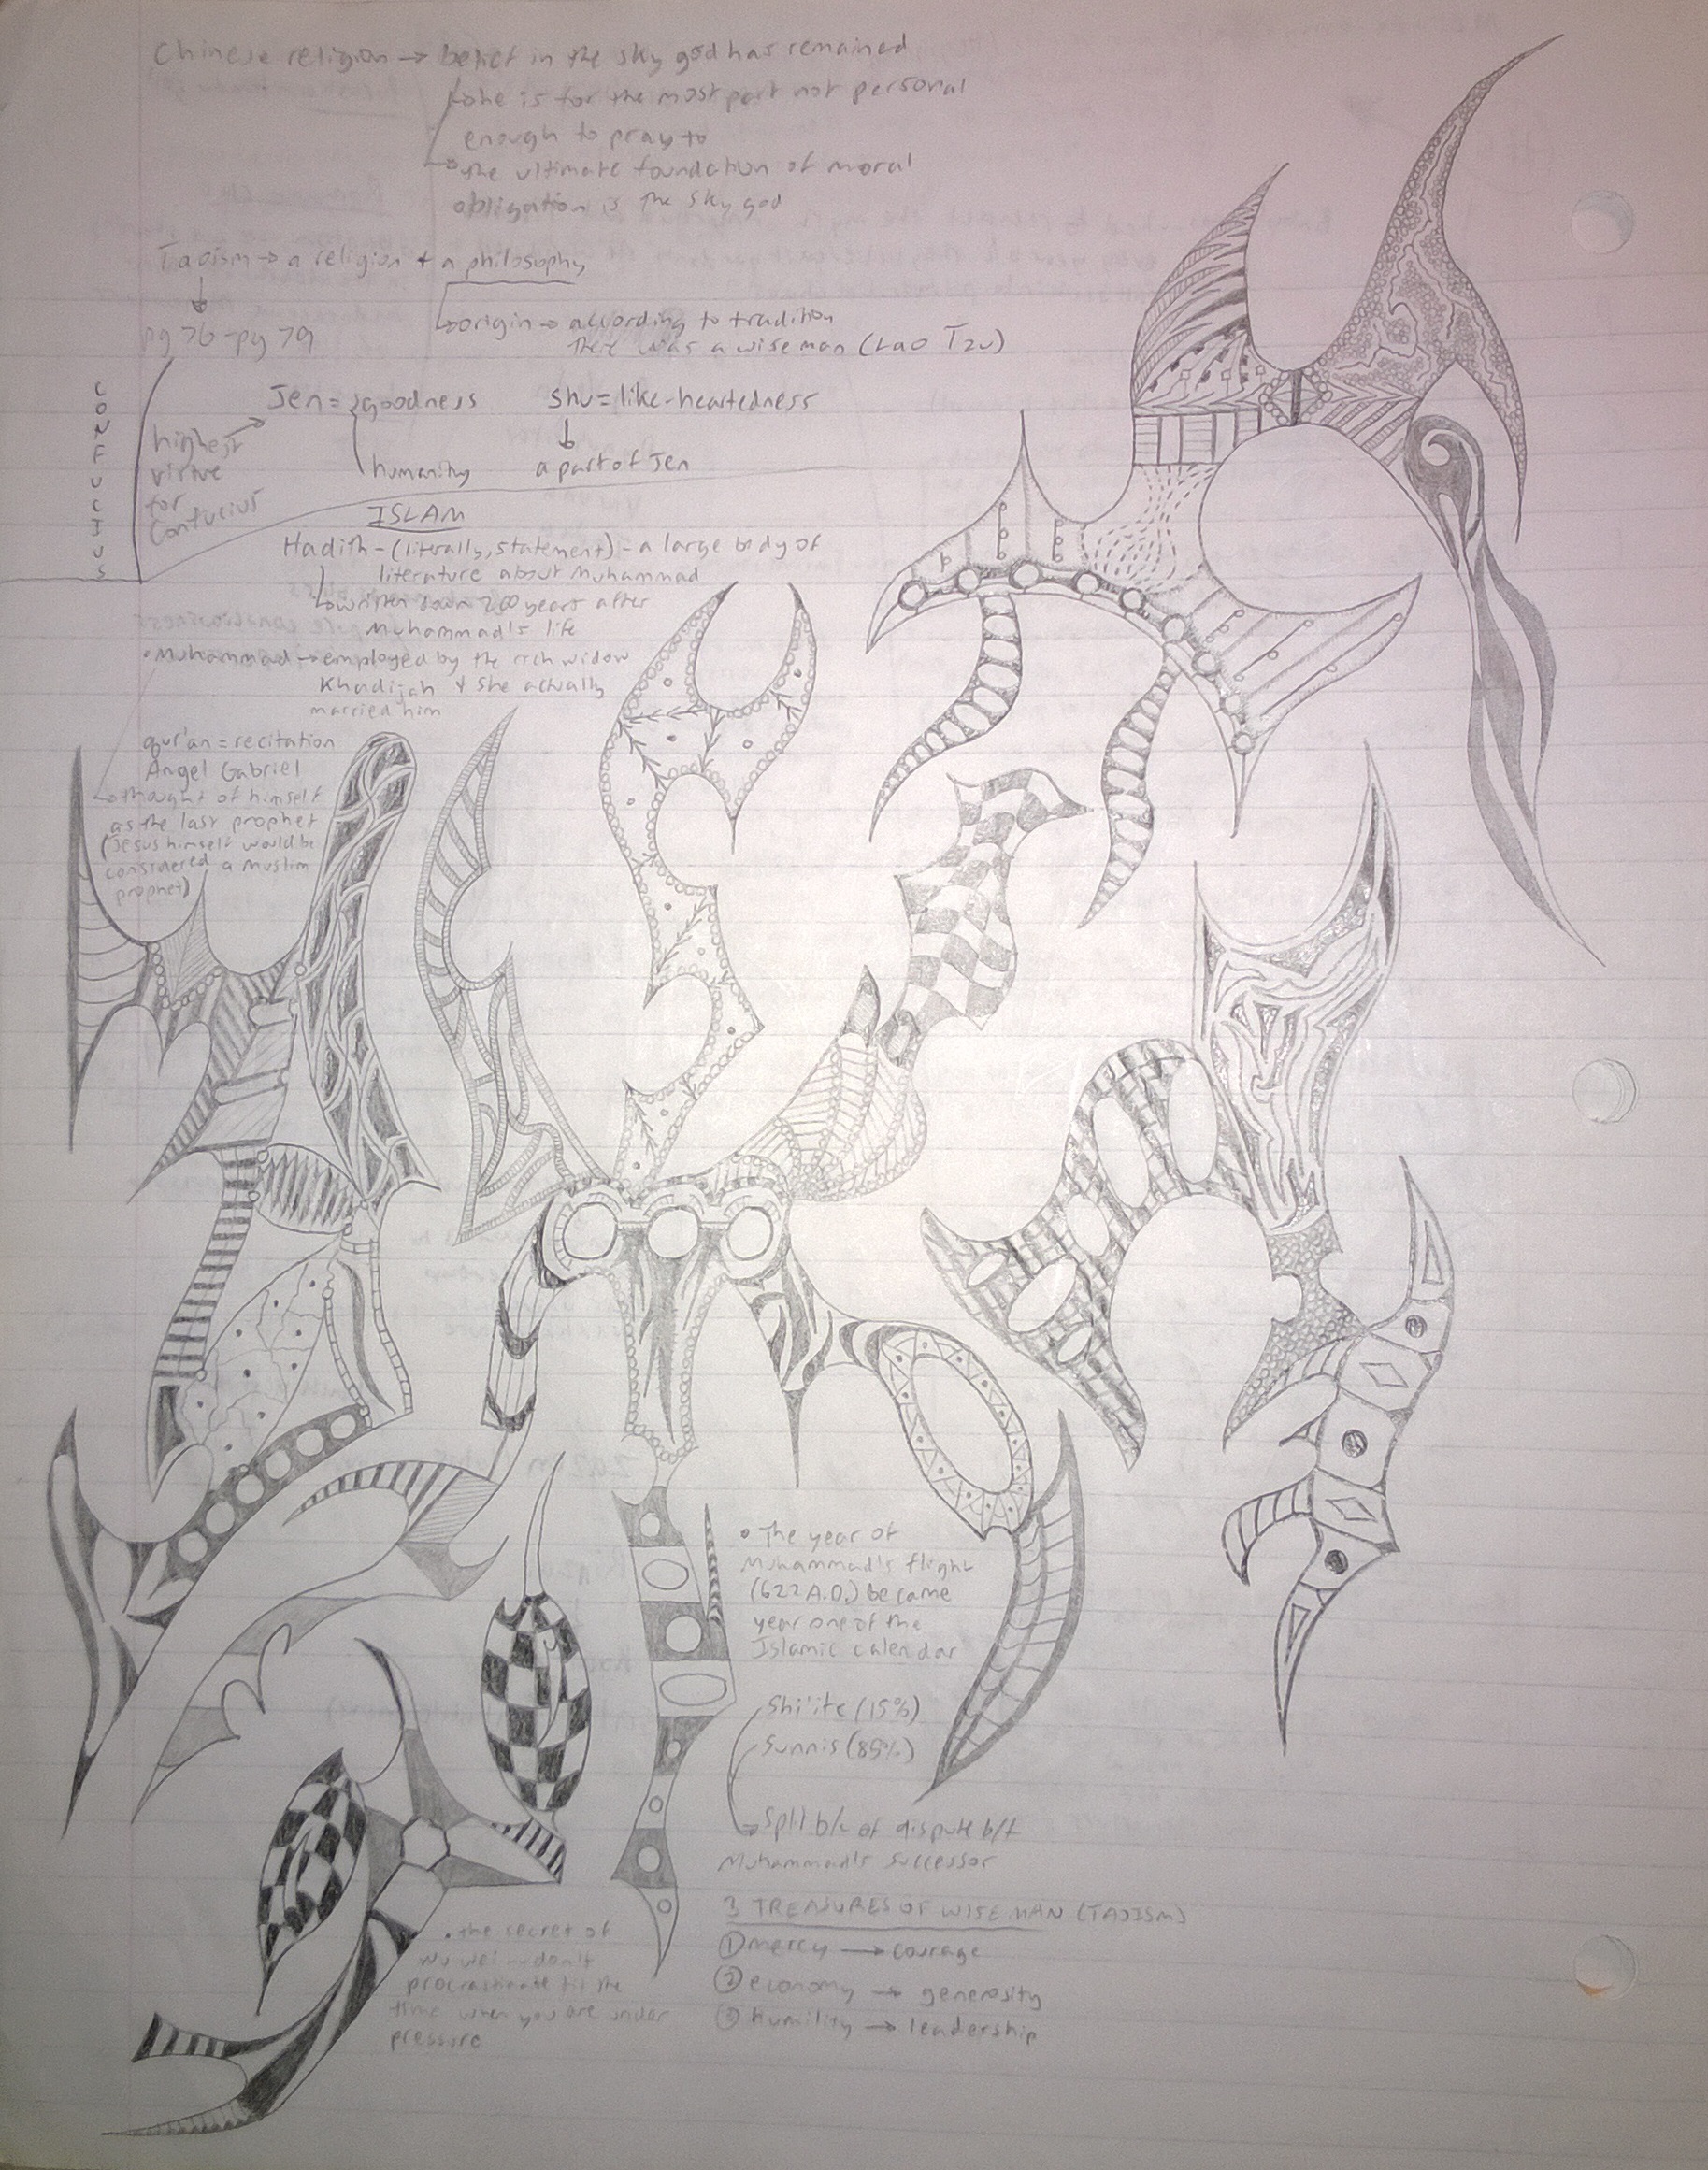 Chinese religion → belief in the sky god has remained
→he is for the most part not personal
enough to pray to
→the ultimate foundation of moral
obligation is the sky god
Taoism → a religion + a philosophy
↓
pg 76-pg 79
→origin → according to tradition
there was a wise man (Lao Tzu)
CONFUCIUS
highest
virtue
for
Confucius
→ Jen = goodness
humanity
shu = like-heartedness
↓
a part of Jen
ISLAM
Hadith - (literally, statement) - a large body of
literature about Muhammad
→written down 200 years after
Muhammad's life
• Muhammad → employed by the rich widow
Khadijah + she actually
married him
qur'an = recitation
Angel Gabriel
→thought of himself
as the last prophet
(Jesus himself would be
considered a Muslim
prophet)
• The year of
Muhammad's flight
(622 A.D.) became
year one of the
Islamic calendar
Shi'ite (15%)
Sunnis (85%)
→ split b/c of dispute b/t
Muhammad's successor
3 TREASURES OF WISE MAN (TAOISM)
① mercy → courage
② economy → generosity
③ humility → leadership
• the secret of
wu wei - don't
procrastinate til the
time when you are under
pressure